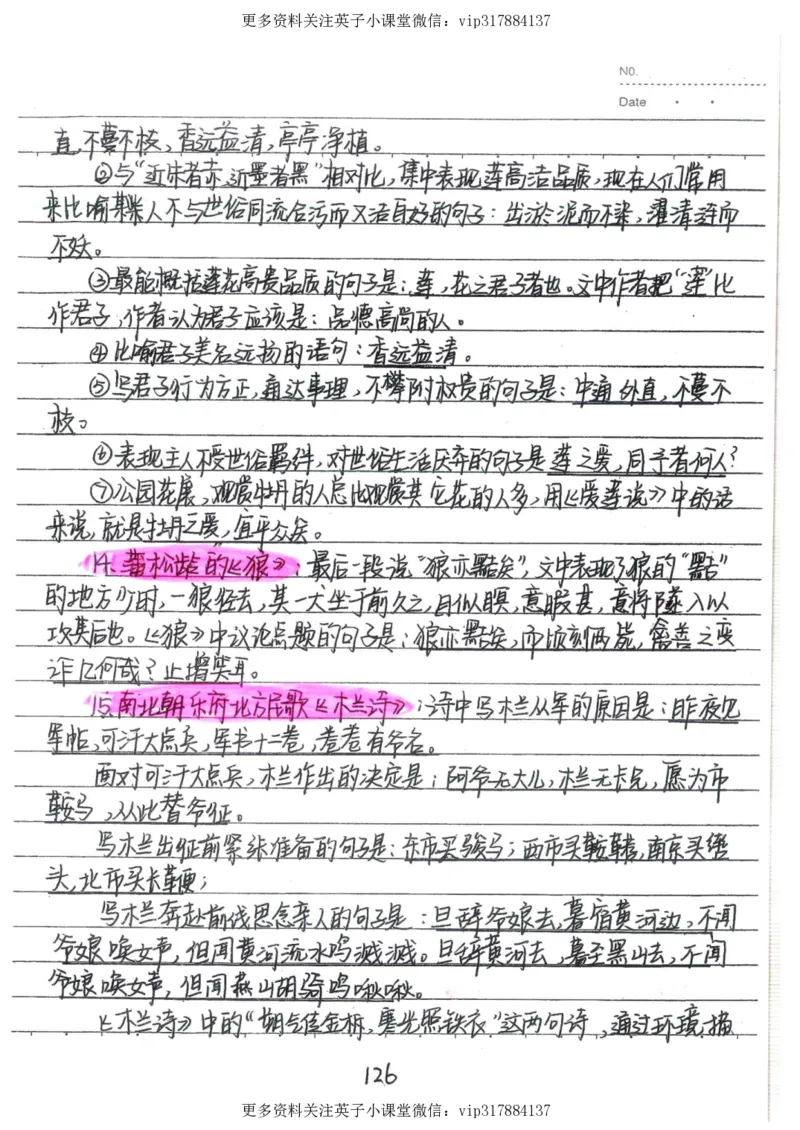 更多资料关注英子小课堂微信：vip317884137
NO.
Date
直，不蔓不枝，香远益清，亭亭净植。
②与“近朱者赤，近墨者黑”相对比，集中表现莲高洁品质，现在人们常用
来比喻某些人不与世俗同流合污而又洁自好的句子：出淤泥而不染，濯清涟而
不妖。
③最能概括莲花高贵品质的句子是：莲，花之君子者也。文中作者把“莲”比
作君子，作者认为君子应该是：品德高尚的人。
④比喻君子美名远扬的语句：香远益清。
⑤写君子行为方正，通达事理，不攀附权贵的句子是：中通外直，不蔓不
枝。
⑥表现主人不受世俗羁绊，对世俗生活厌弃的句子是莲之爱，同予者何人？
⑦公园花展，观赏牡丹的人总比观赏其它花的人多，用《爱莲说》中的话
来说，就是牡丹之爱，宜乎众矣。
14.蒲松龄的《狼》：最后一段说“狼亦黠矣”，文中表现了狼的“黠”
的地方少时，一狼径去，其一犬坐于前久之，目似瞑，意暇甚，意将隧入以
攻其后也。《狼》中议论点题的句子是：狼亦黠矣，而顷刻两毙，禽兽之变
诈几何哉？止增笑耳。
15.南北朝乐府北方民歌《木兰诗》：诗中写木兰从军的原因是：昨夜见
军帖，可汗大点兵，军书十二卷，卷卷有爷名。
面对可汗大点兵，木兰作出的决定是：阿爷无大儿，木兰无长兄，愿为市
鞍马，从此替爷征。
写木兰出征前紧张准备的句子是：东市买骏马；西市买鞍鞯，南京买辔
头，北市买长鞭；
写木兰奔赴前线思念亲人的句子是：旦辞爷娘去，暮宿黄河边，不闻
爷娘唤女声，但闻黄河流水鸣溅溅。旦辞黄河去，暮至黑山去，不闻
爷娘唤女声，但闻燕山胡骑鸣啾啾。
《木兰诗》中的“朔气传金柝，寒光照铁衣”这两句诗，通过环境描
126
更多资料关注英子小课堂微信：vip317884137